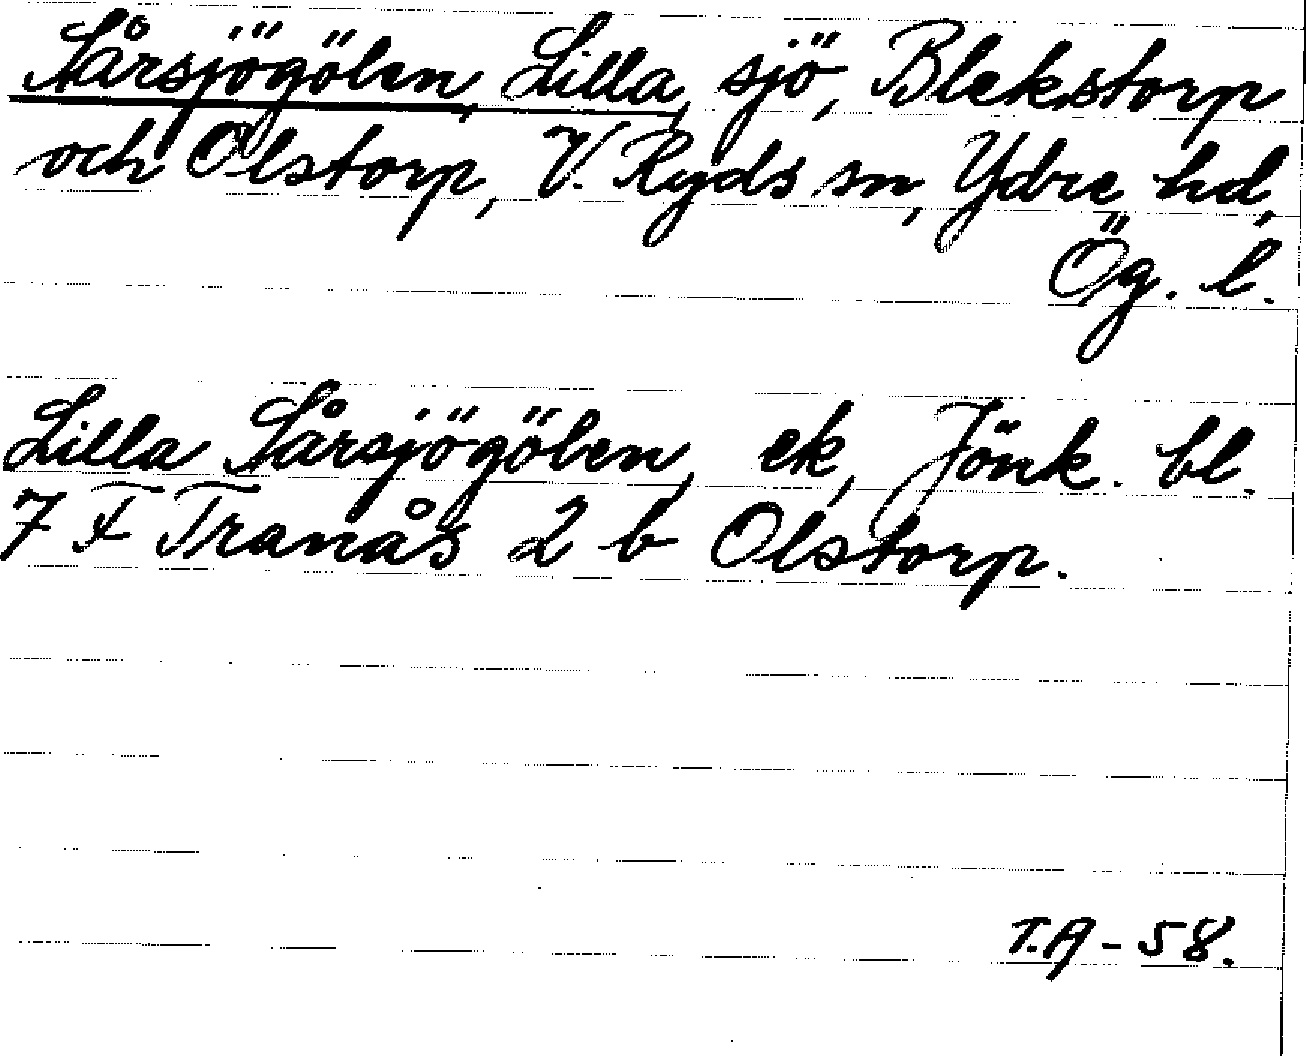 Sårsjögölen, Lilla, sjö, Blekstorp
och Olstorp, V. Ryds sn, Ydre hd,
Ög. l.
Lilla Sårsjögölen, ek, Jönk. bl.
7 F Tranås 2 b Olstorp.
T.A - 58.